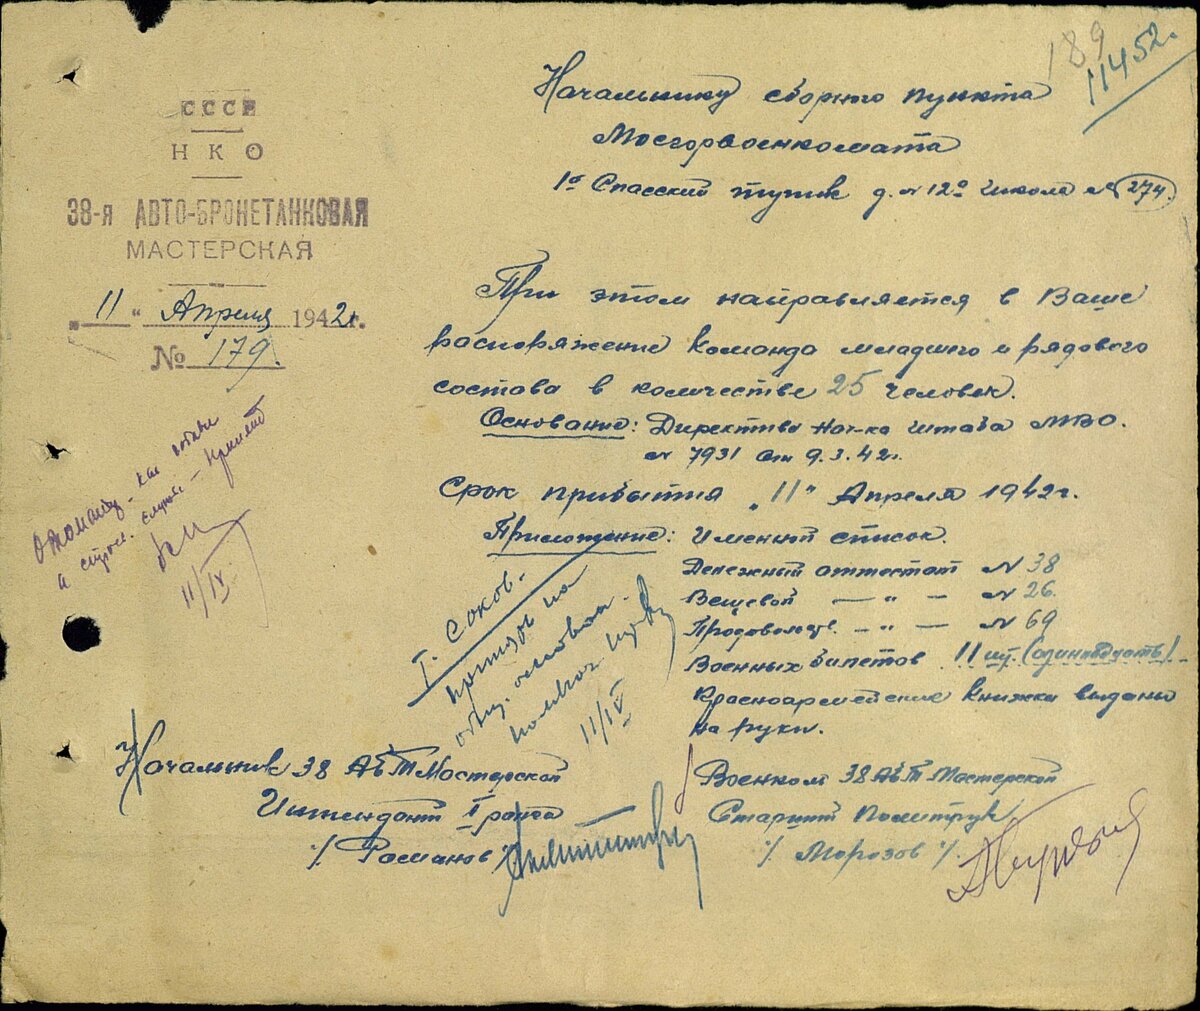 189
11452.
СССР
НКО
38-я АВТО-БРОНЕТАНКОВАЯ
МАСТЕРСКАЯ
"11" Апреля 1942г.
№ 179.
Начальнику сборного пункта
Мосгорвоенкомата
1й Спасский тупик д. № 12а школа № 274.
При этом направляется в Ваше
распоряжение команда младшего и рядового
состава в количестве 25 человек.
Основание: Директива Нач-ка штаба МВО.
№ 7931 от 9.3.42г.
Срок прибытия "11" Апреля 1942г.
Приложение: Именной список.
Денежный аттестат № 38
Вещевой — " — № 26.
Продовольств. — " — № 69
Военных билетов 11 шт. (одиннадцать)
Красноармейские книжки выданы
на руки.
11/IV
Т. Соков.
11/IV
Начальник 38 АБТ Мастерской
Интендант II ранга
/Романов/
Военком 38 АБТ Мастерской
Старший Политрук
/Морозов/.